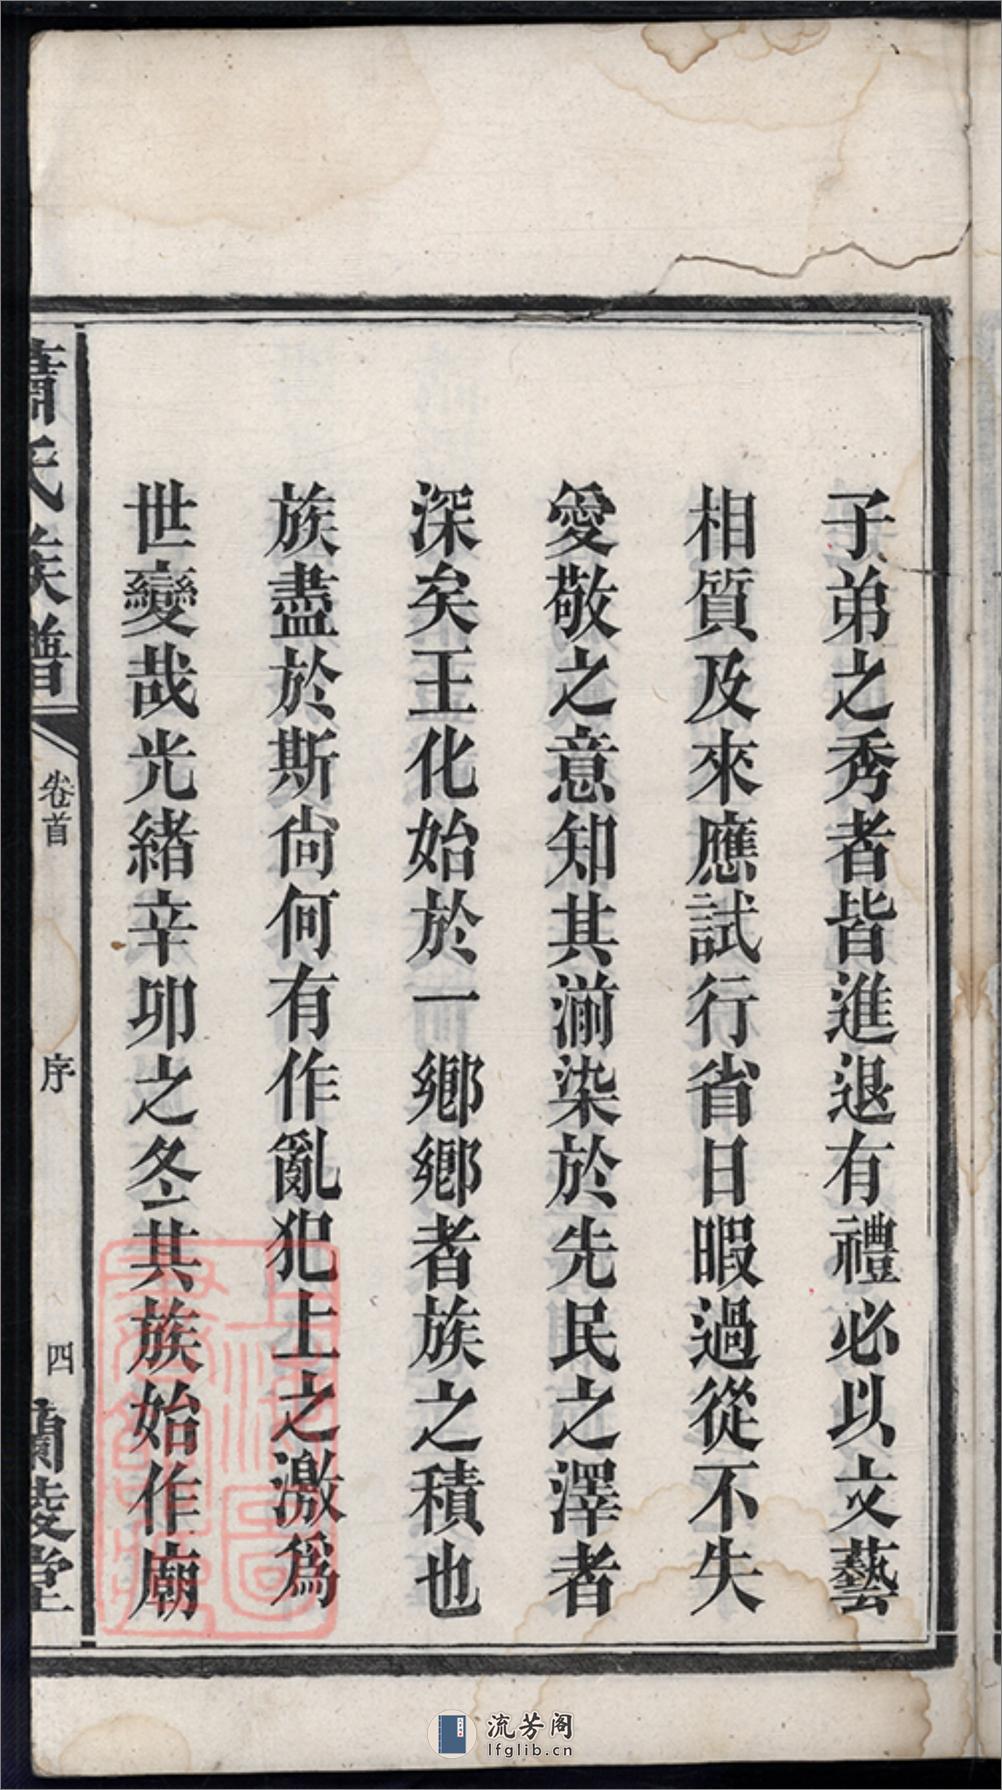 子弟之秀者皆進退有禮必以文藝
相質及來應試行省日暇過從不失
愛敬之意知其漸染於先民之澤者
深矣王化始於一鄉鄉者族之積也
族盡於斯尚何有作亂犯上之激為
世變哉光緒辛卯之冬其族始作廟
蕭氏族譜
卷首
序
四
蘭陵堂
上海圖書館藏
流芳阁
lfglib.cn